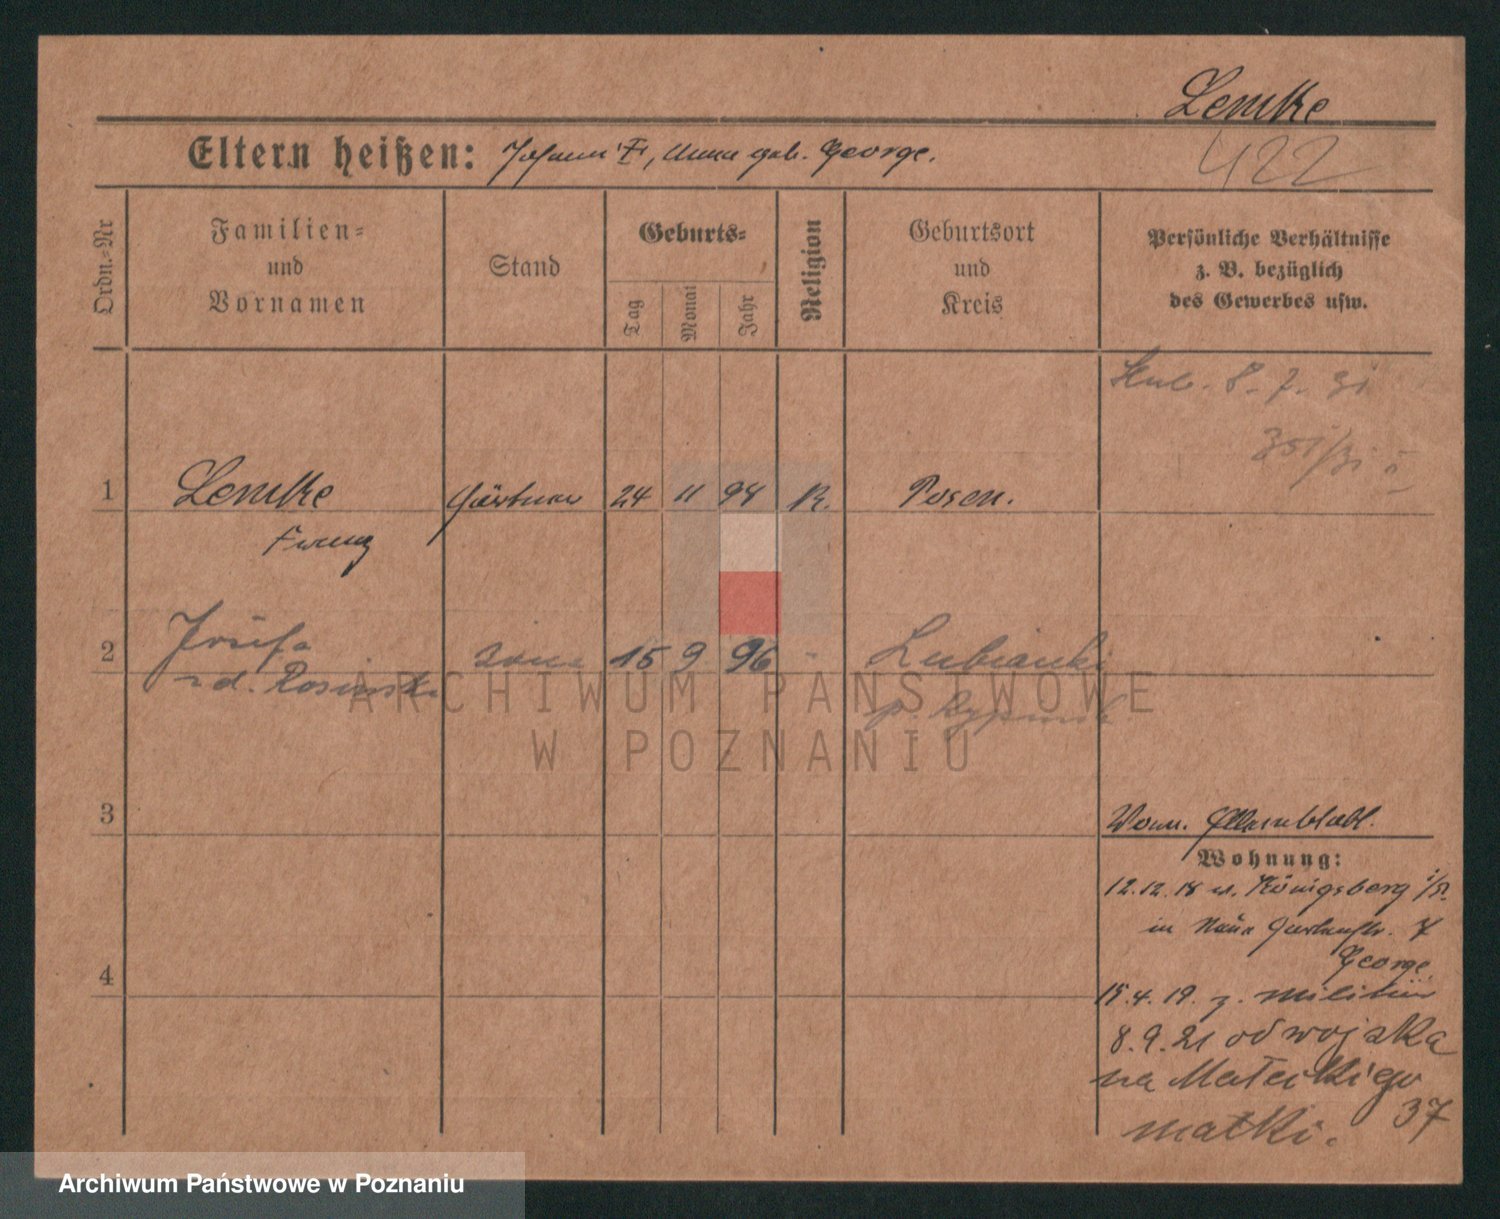 Lemke
422
Eltern heißen: Johann, Anna geb. George.
Ordn.-Nr
Familien-
und
Vornamen
Stand
Geburts-
Tag
Monat
Jahr
Religion
Geburtsort
und
Kreis
Persönliche Verhältnisse
z. B. bezüglich
des Gewerbes usw.
8. 7. 31
351/31
1 Lemke Gärtner 24 11 94 R. Posen.
Franz
2 Józefa żona 15 9 96 - Lubianki
zd. Rosinska
p. Rypinsk
3
Wohnung:
12.12.18 v. Königsberg i/Pr.
in Neue Gartenstr. 7
George
15.4.19. z. Militär
8.9.21 od wojska
na Małeckiego
37
matki.
4
ARCHIWUM PAŃSTWOWE
W POZNANIU
Archiwum Państwowe w Poznaniu